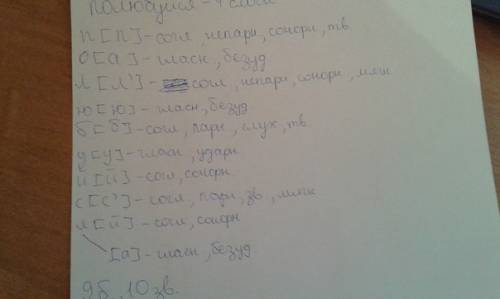 полюбуйся - 4 слога
п [п] - согл, непарн, сонорн, тв
о [а] - гласн, безуд
л [л'] - согл, непарн, сонорн, мягк
ю [ю] - гласн, безуд
б [б] - согл, парн, глух, тв
у [у] - гласн, ударн
й [й] - согл, сонорн
с [с'] - согл, парн, зв, мягк
я [й] - согл, сонорн
[а] - гласн, безуд
9б, 10 зв.